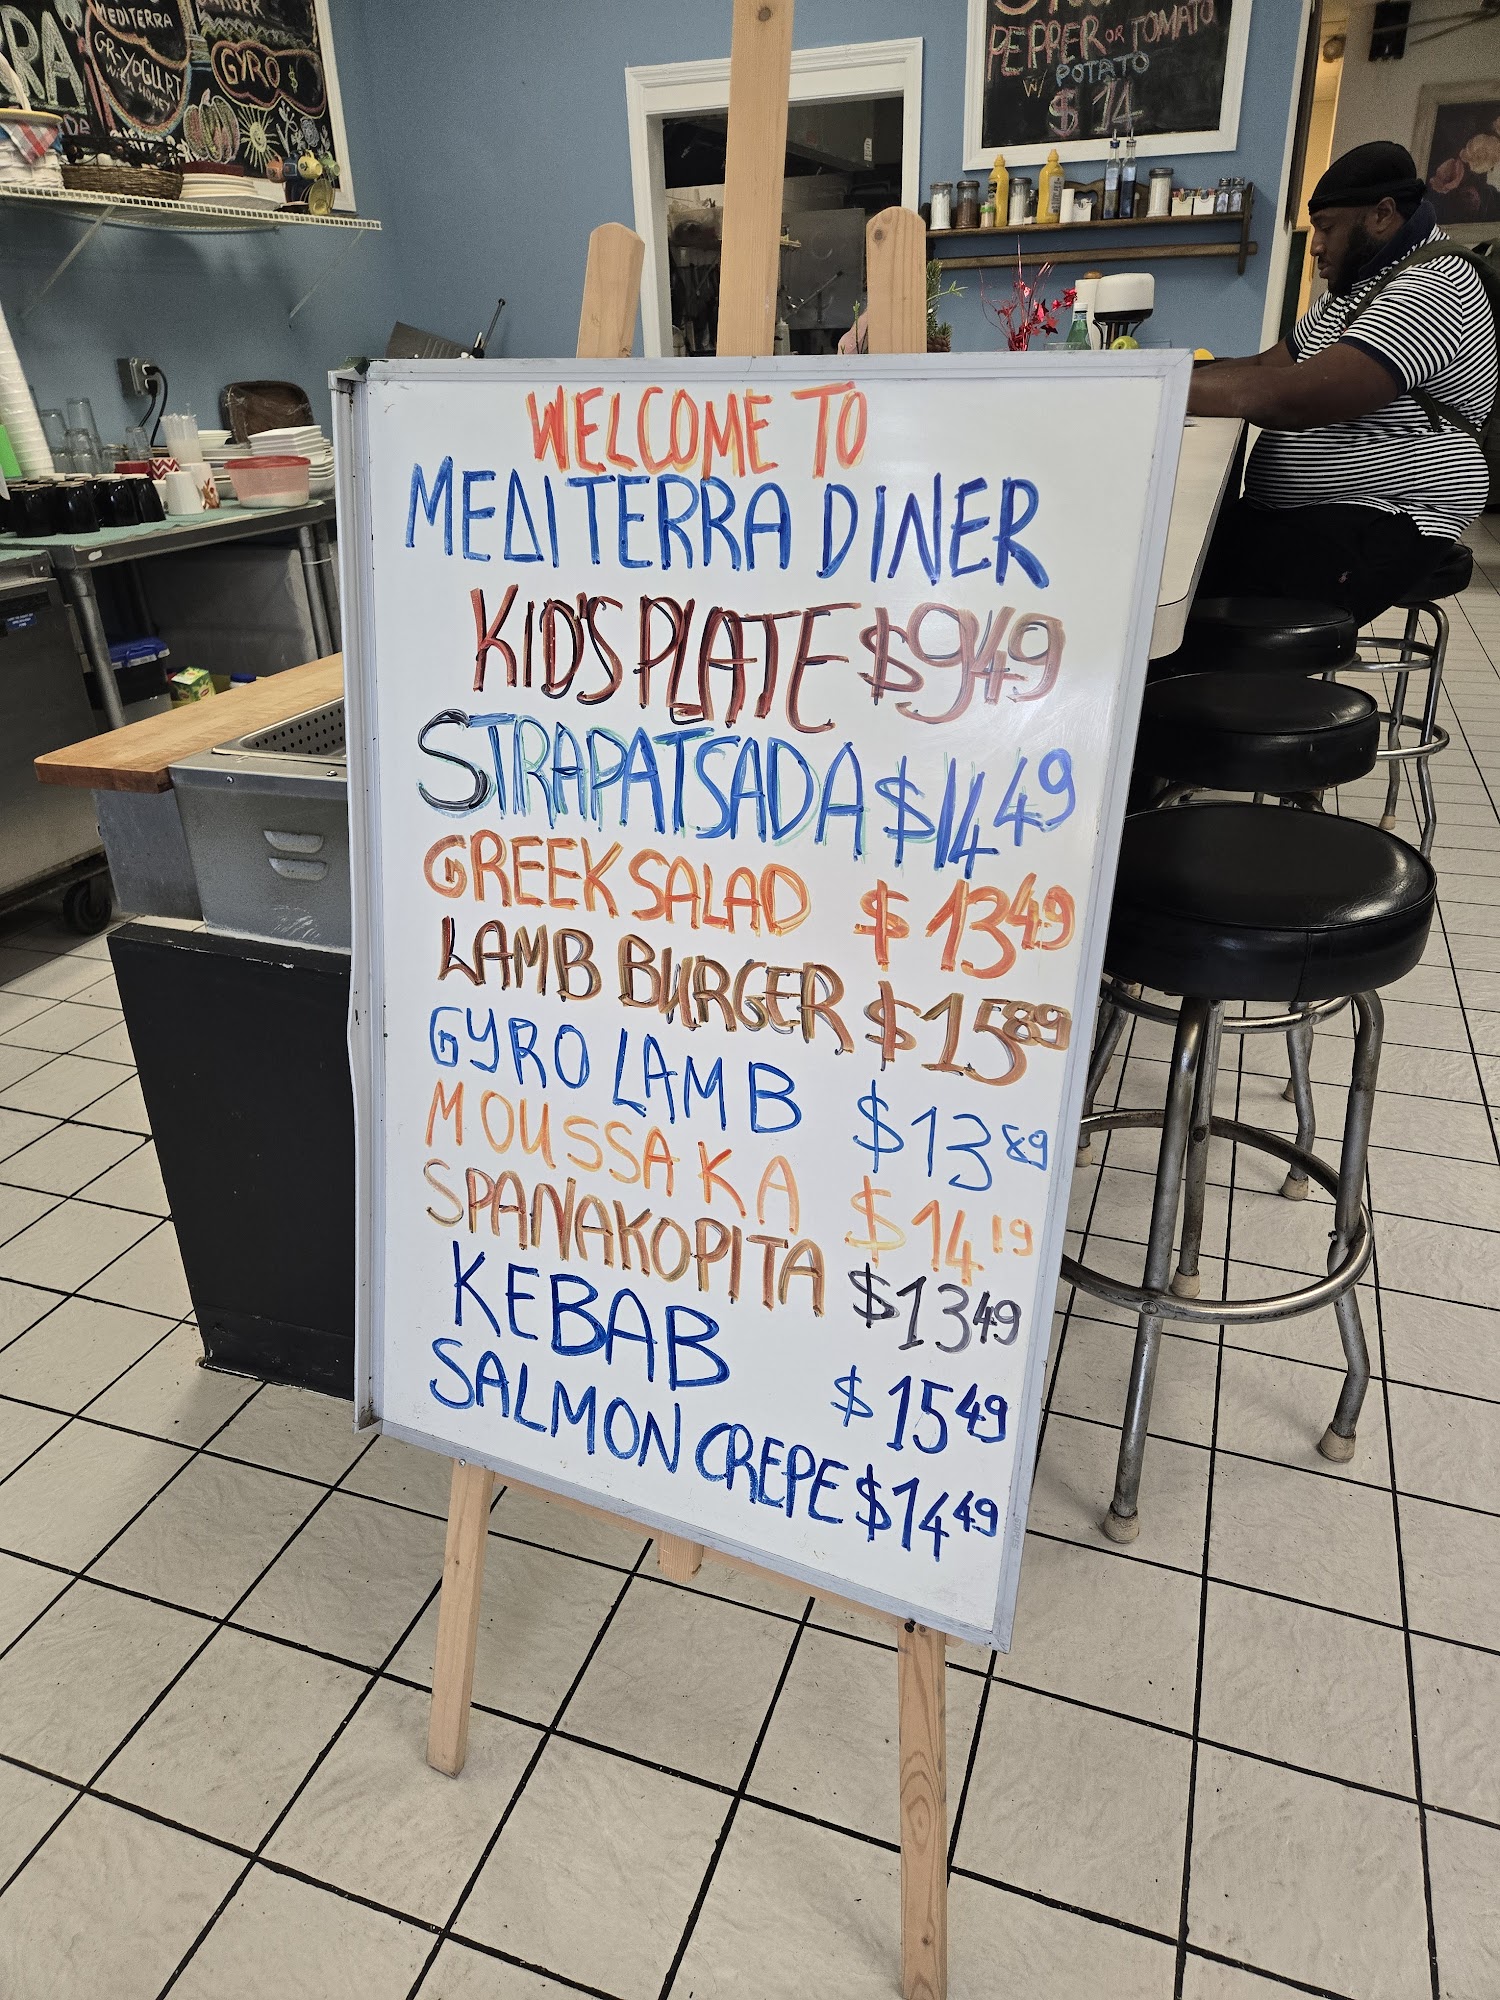 MEDITERRA
GR-YOGURT
WITH HONEY
GYRO $
PEPPER OR TOMATO
W/ POTATO
$14
WELCOME TO
MEΔITERRA DINER
KID'S PLATE $9.49
STRAPATSADA $14.49
GREEK SALAD $13.49
LAMB BURGER $15.89
GYRO LAMB $13.89
MOUSSAKA $14.19
SPANAKOPITA $13.49
KEBAB $15.49
SALMON CREPE $14.49